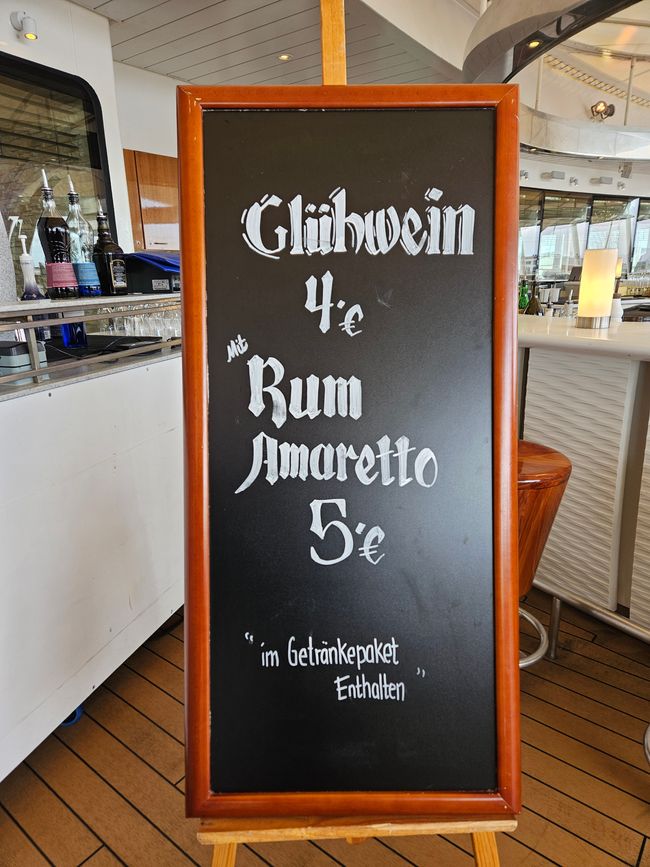 Glühwein
4.€
Mit
Rum
Amaretto
5.€
" im Getränkepaket
Enthalten "